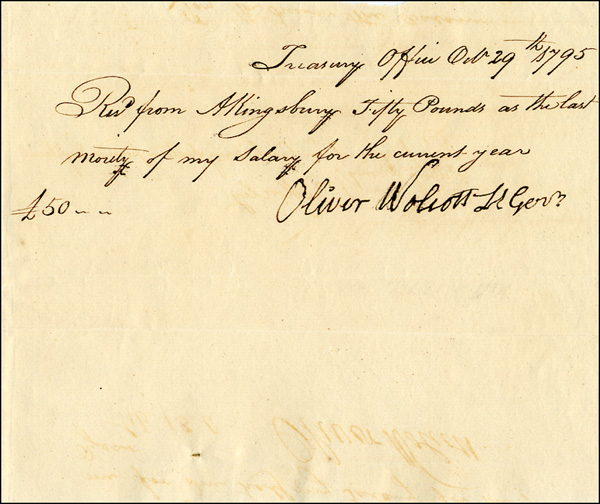 Treasury Office Octr 29th 1795
Recd from A Kingsbury Fifty Pounds as the last
moiety of my Salary for the current year
£50 — —
Oliver Wolcott Lt Govr